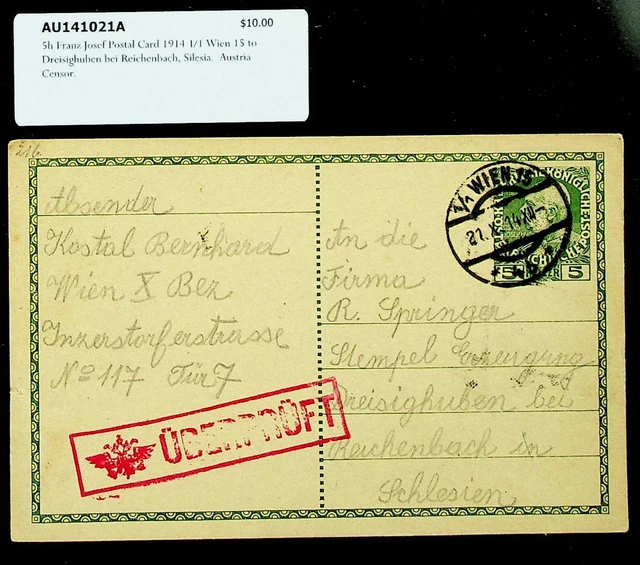 AU141021A $10.00
5h Franz Josef Postal Card 1914 1/1 Wien 15 to
Dreisighuben bei Reichenbach, Silesia. Austria
Censor.
216
Absender
Kostal Bernhard
Wien X Bez
Inzerstorferstrasse
No 117 Tür 7
ÜBERPRÜFT
1/1 WIEN 15
5 5
An die
Firma
R. Springer
Stempel Erzeugung
Dreisighuben bei
Reichenbach in
Schlesien